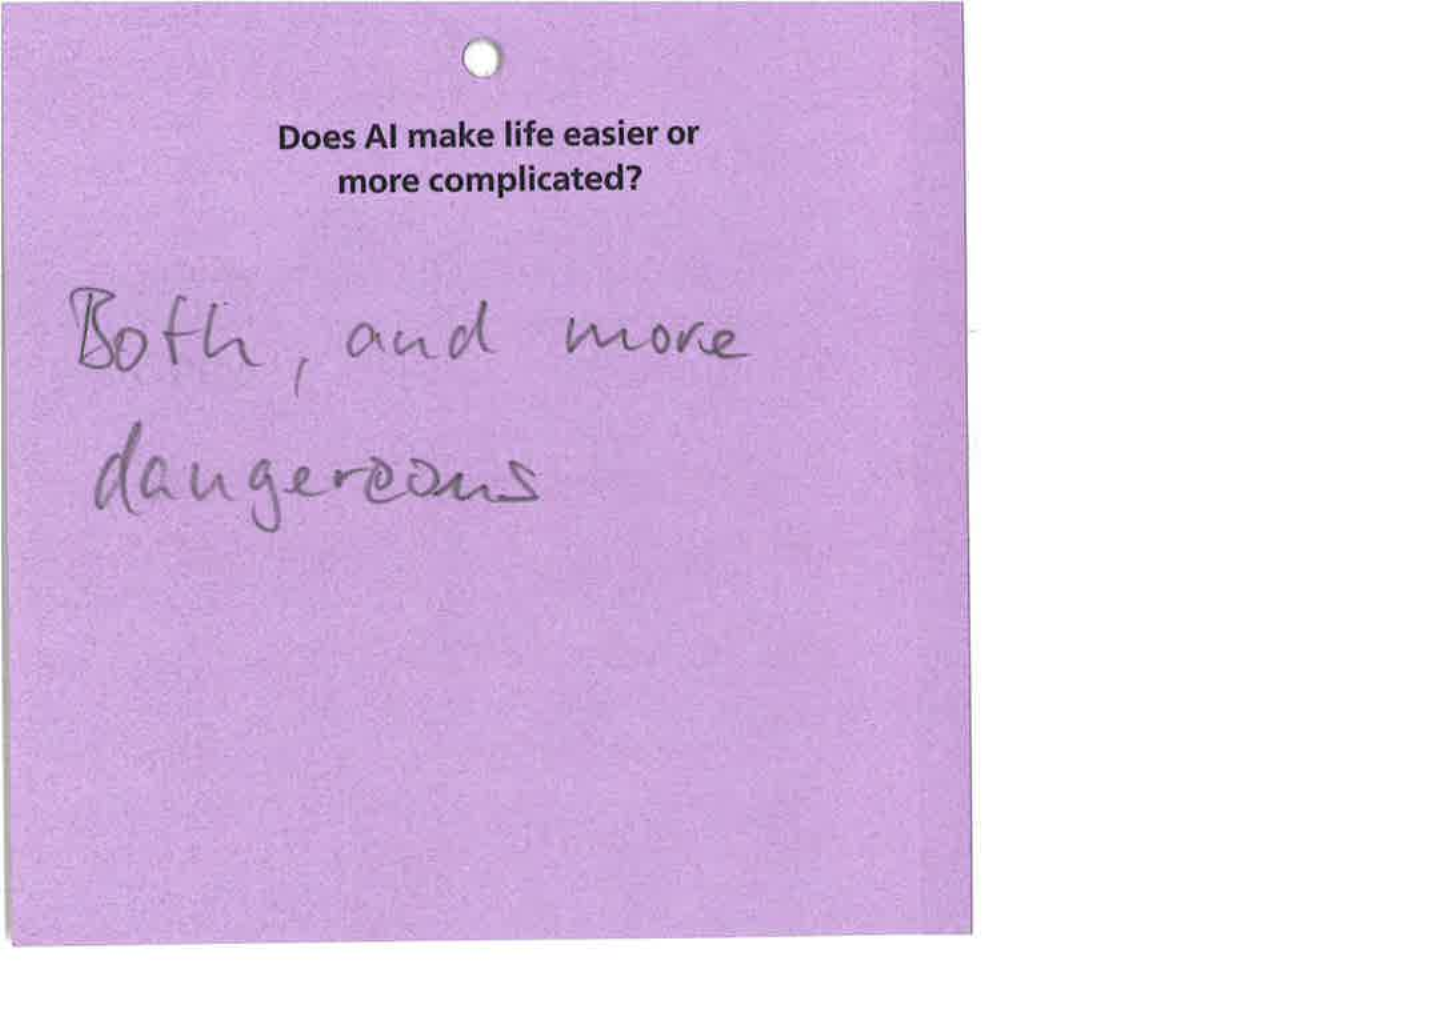 Does AI make life easier or
more complicated?
Both, and more
dangereous